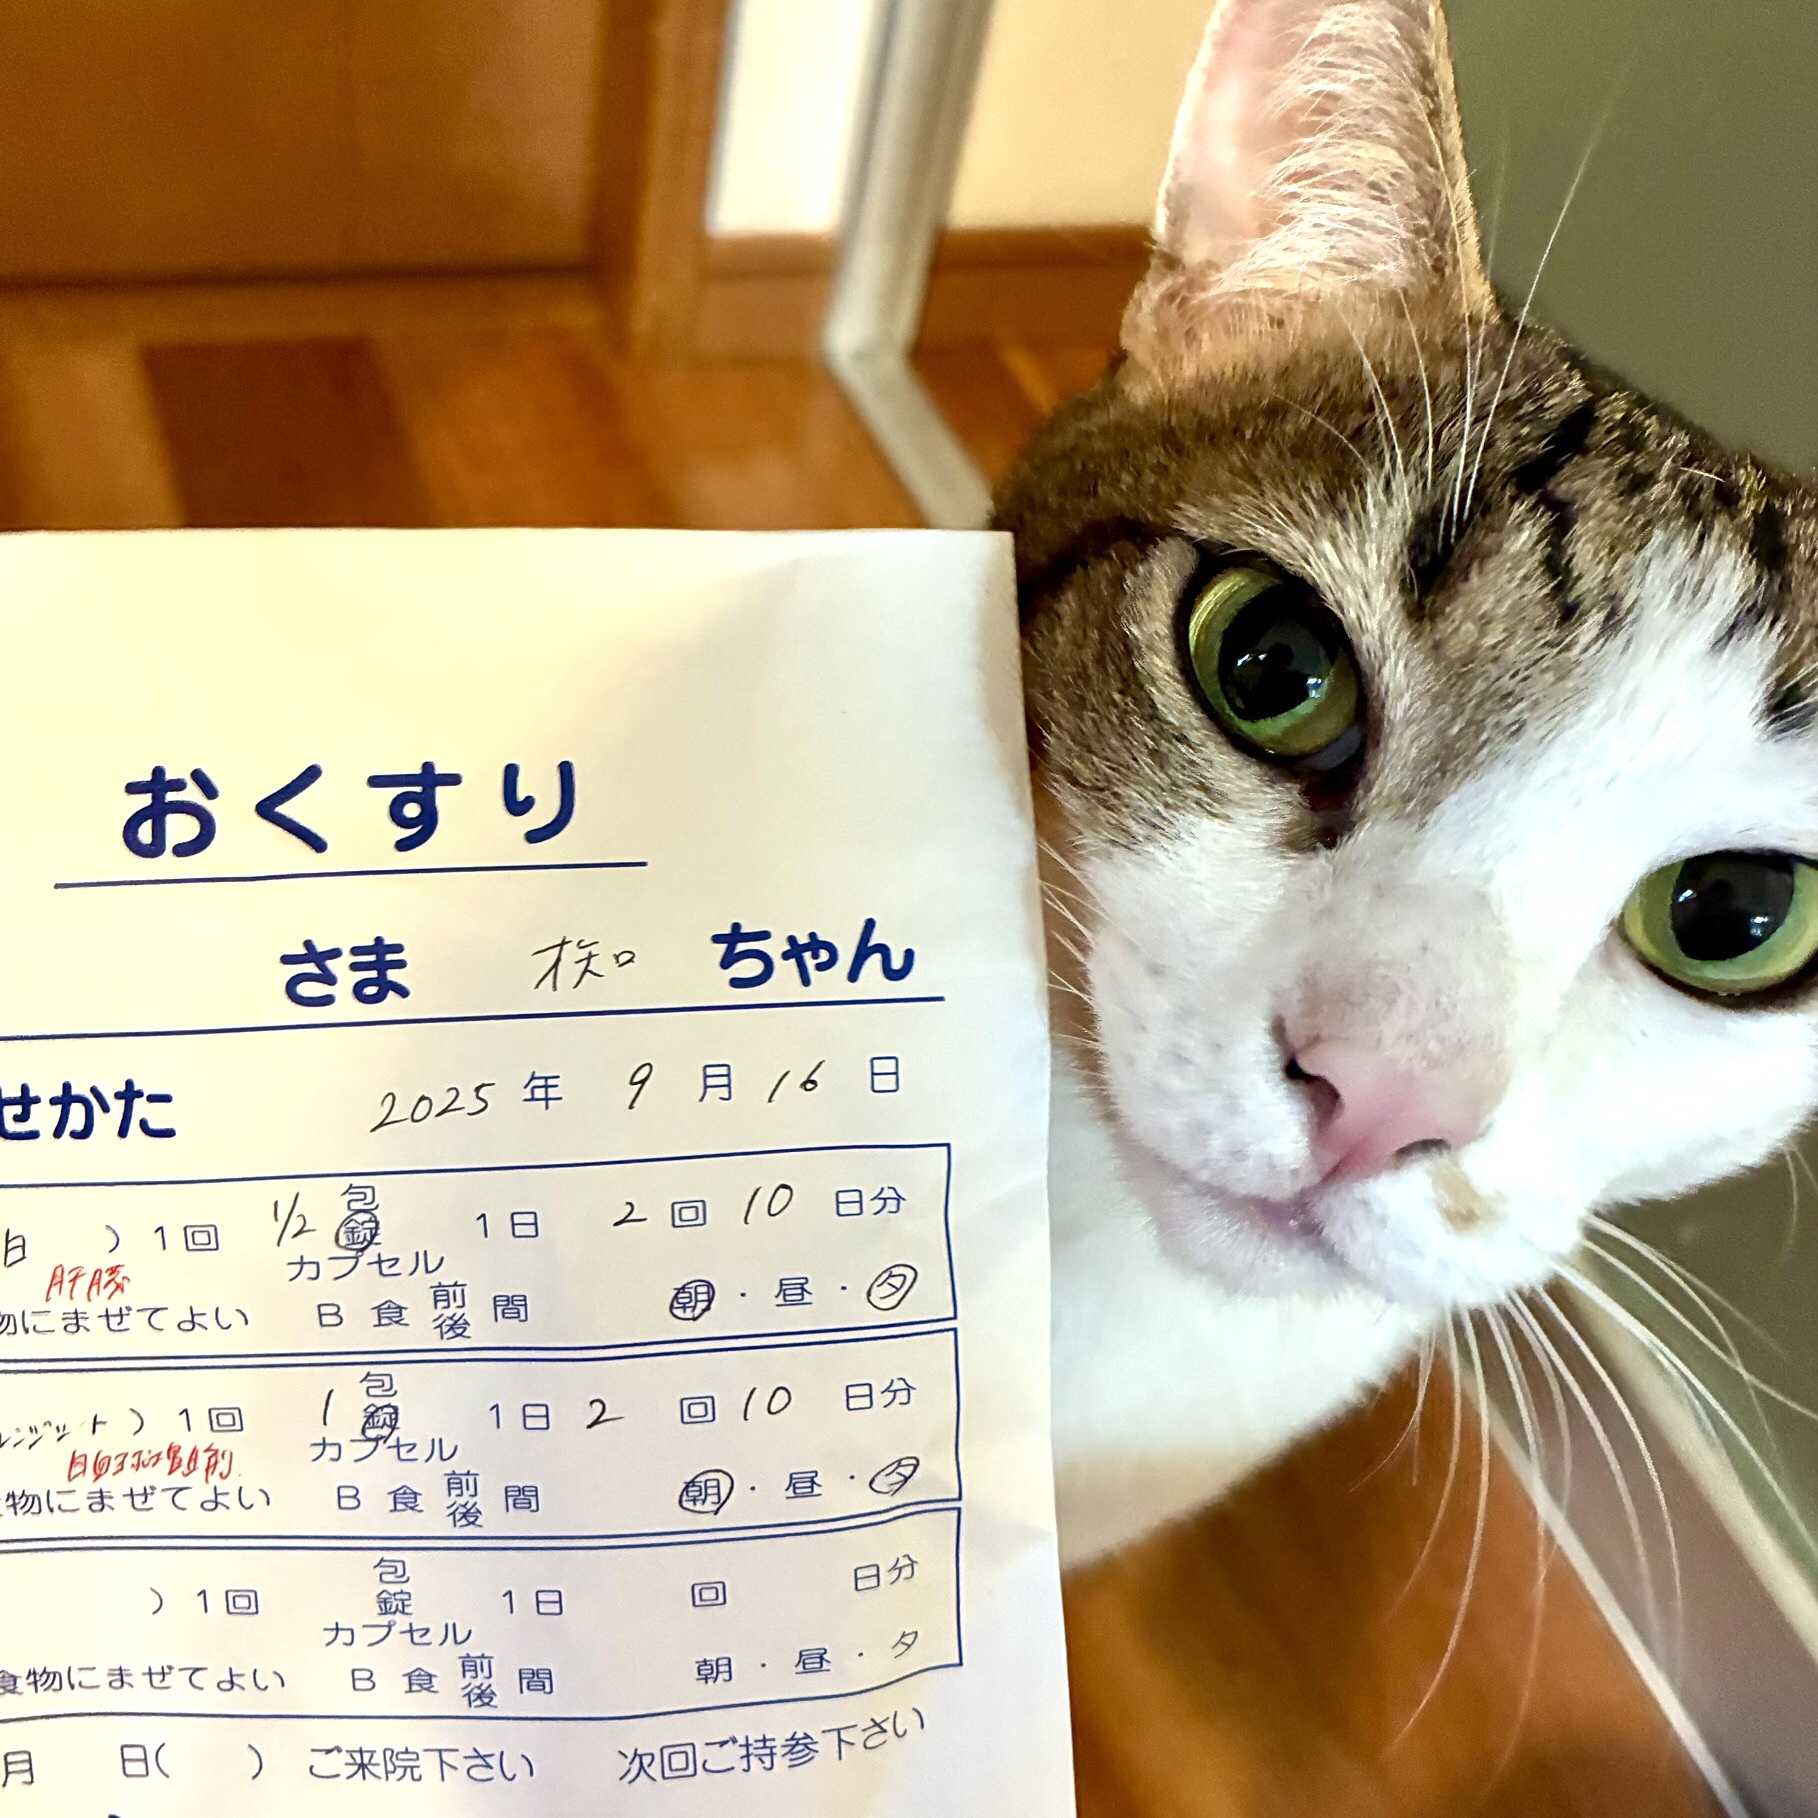 おくすり
さま ちゃん
せかた 2025年 9月 16日
白 ) 1回 1/2 包 錠 カプセル 1日 2回 10 日分
肝臓
物にまぜてよい B 食 前 後 間 朝・昼・夕
) 1回 1 包 錠 カプセル 1日 2 回 10 日分
物にまぜてよい B 食 前 後 間 朝・昼・夕
) 1回 包 錠 カプセル 1日 回 日分
食物にまぜてよい B 食 前 後 間 朝・昼・夕
月 日( ) ご来院下さい 次回ご持参下さい